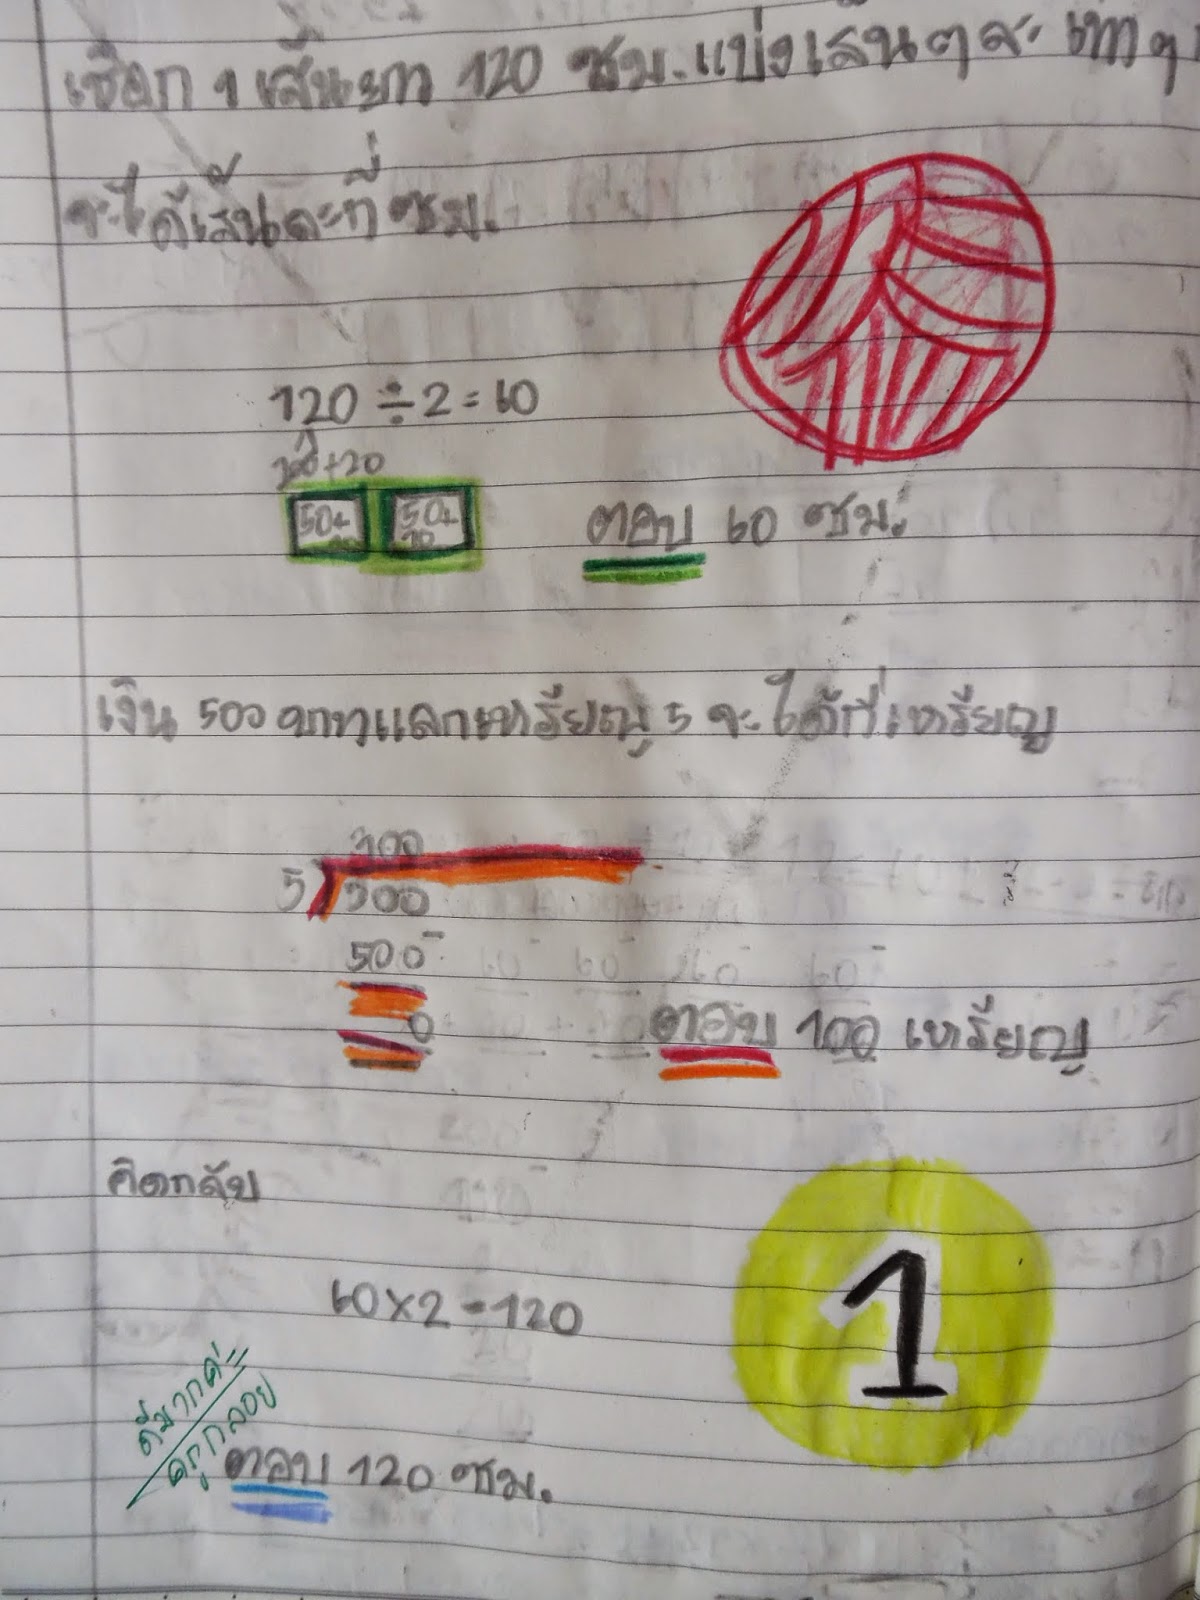 เชือก 1 เส้นยาว 120 ซม. แบ่งเส้นๆละ เท่าๆ
จะได้เส้นละกี่ ซม.
120 ÷ 2 = 60
100+20
50+ 50+
10 10
ตอบ 60 ซม.
เงิน 500 บาทแลกเหรียญ 5 จะได้กี่เหรียญ
100
5 500
500 -
0
ตอบ 100 เหรียญ
คิดกลับ
60 x 2 = 120
1
ดีมากค่ะ
ครูกลอย
ตอบ 120 ซม.